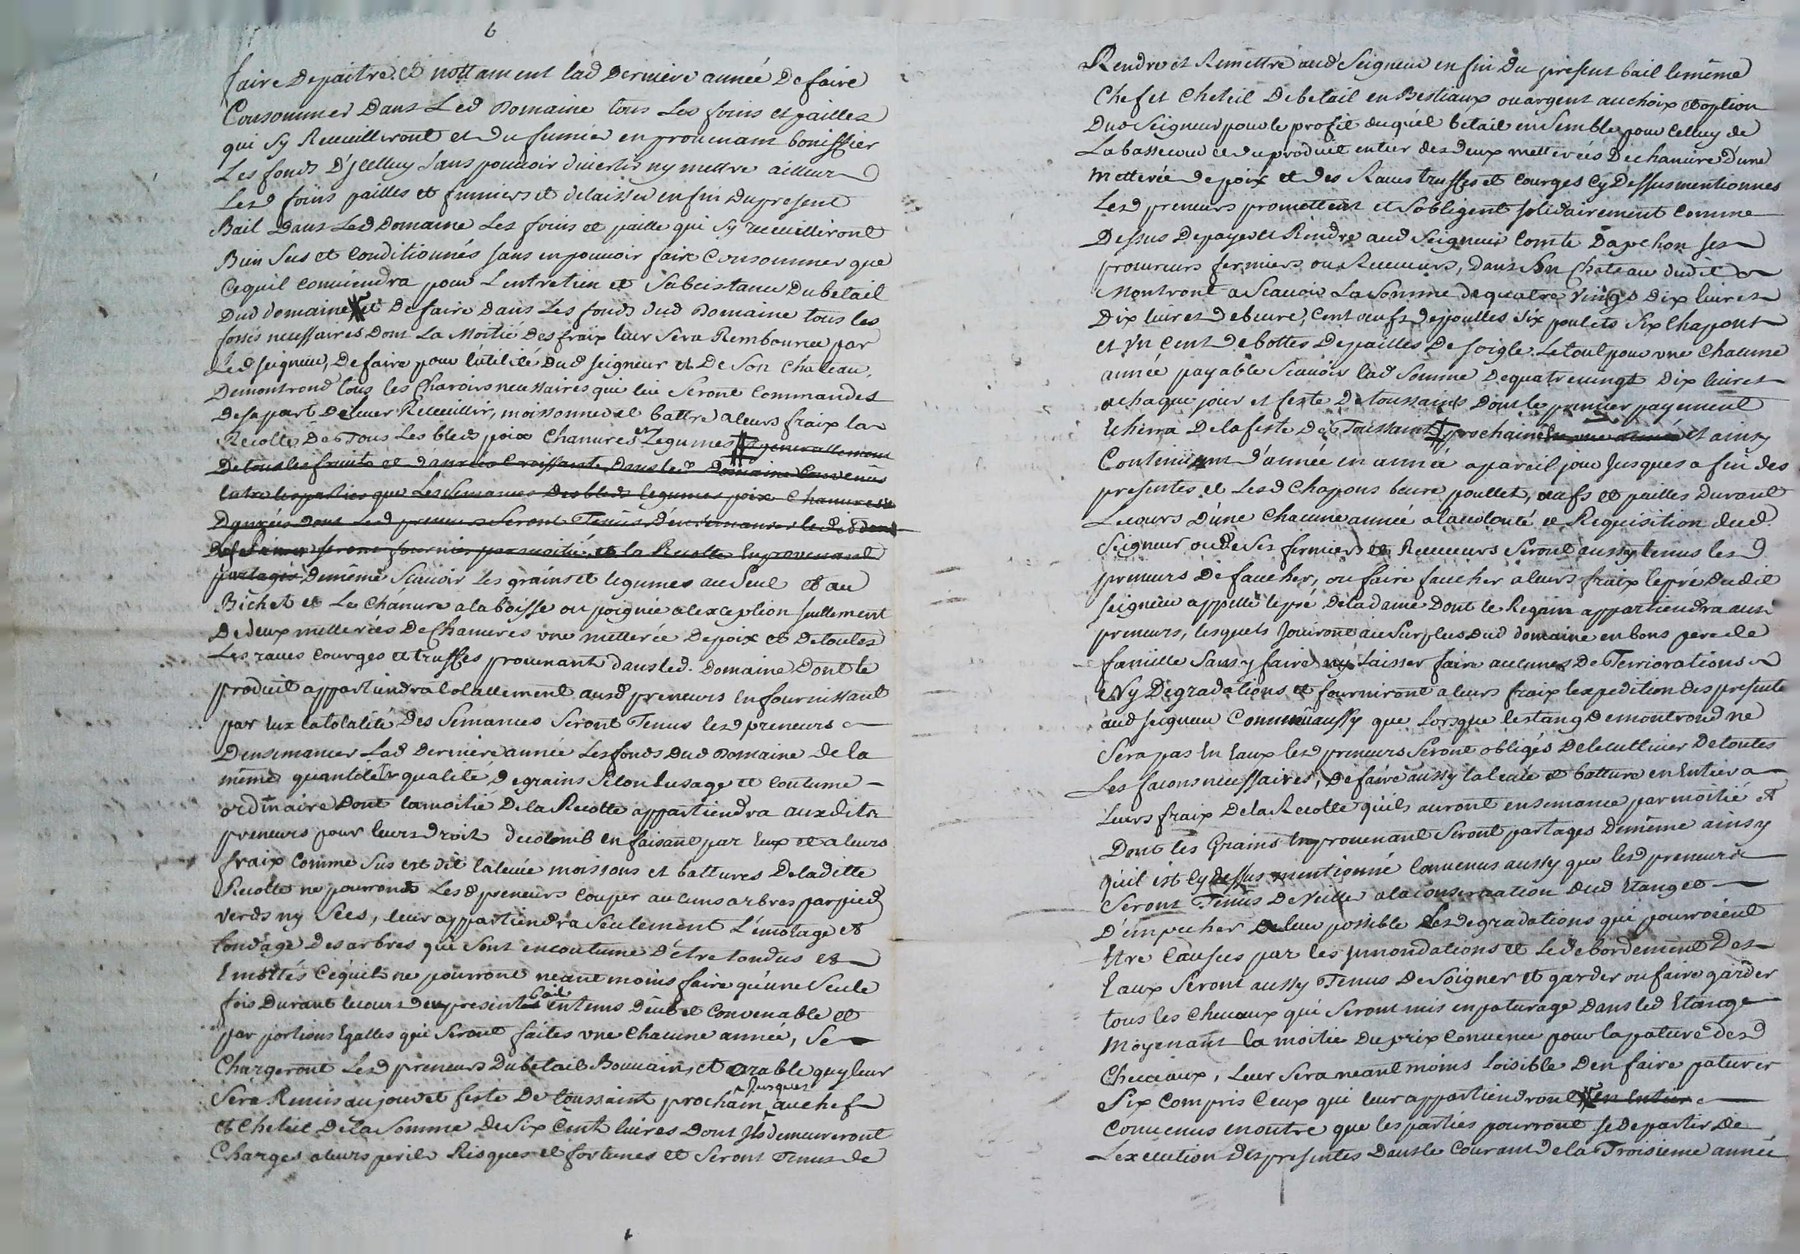 6
faire Depaitre et nottament lad Derniere année De faire
Consommer Dans Led Domaine tous Les foins et pailles
qui sy Recueilleront et du fumier en provenant bonissier
Les fonds D'jcelluy sans pouvoir divertir ny mettre ailleurs
Lesd foins pailles et fumiers et delaisser en fin Du present
Bail Dans Led Domaine Les foins et paille qui sy recueilliront
Bien Secs et Conditionnés sans en pouvoir faire Consommer que
Ce quil conviendra pour L'entretien et Subcistance Du betail
Dud domaine et De faire Dans Les fonds dud Domaine tous les
fossés necessaires Dont La Moitié Des fraix leur Sera Rembourcée par
Led seigneur, De faire pour l'utilité Dud seigneur et De Son Chateau
Demontrond tous les Charoirs necessaires qui leur Seront Commandés
De sa part De lever Recueillir, moissonner et battre a leurs fraix la
Recolte De Tous Les bleds poix Chanures et Legumes generallement
De tous les fruits et danrées Croissants Dans led Domaine Convenus
Entre les parties que Les Semances Des bleds legumes poix Chanures
Danrées Dont Led preneurs Seront Tenus D'ensemancer led Domaine
seront fournies par moitié et la Recolte En provenant
partagée De même Scavoir Les grains et legumes au Seul et au
Bichet et La Chanure a la boisse ou poignée a lexception seullement
De deux metterées De Chanures une metterée De poix et De toutes
Les raves Courges et truffes provenant dans led. Domaine Dont le
produit appartiendra totallement ausd preneurs En fournissant
par Eux la totalité Des Semances Seront Tenus lesd preneurs
D'ensemancer Lad Derniere année Les fonds Dud Domaine de la
même quantité et qualité De grains Selon l'usage et Coutume
ordinaire Dont la moitié De la Recolte appartiendra auxdits
preneurs pour leurs Droit de colonie En faisant par Eux et a leurs
fraix Comme Sus est dit la levée moissons et battures De la ditte
Recolte ne pourront Lesd preneurs Couper aucuns arbres par pied
verds ny Secs, leur appartiendra Seulement L'emotage et
tondage Des arbres qui Sont en coutume D'être tondus et
Emottés Ce qu'ils ne pourront neant moins faire qu'une Seule
fois Durant le cours Du present Bail En tems Deub et Convenable et
par portions Egalles qui Seront faites une Chacune année, Se
Chargeront Lesd preneurs Du betail Bouvain et arable quy leur
Sera Remis au jour et feste De toussaint prochain Jusques au chef
et Cheteil De La Somme De Six Cent livres Dont Ils demeureront
Charges a leurs perils Risques et fortunes et Seront Tenus De
Rendre et Remettre aud Seigneur en fin Du present bail le même
Chef et Cheteil De betail en Bestiaux ou argent au choix et option
Dud Seigneur pour le profit duquel betail ensemble pour Celluy de
La basse cour et du produit entier des deux metterées De chanvre D'une
Metterée De poix et des Raves truffes et Courges Cy Dessus mentionnés
Lesd preneurs promettent et S'obligent solidairement Comme
Dessus De payer et Rendre aud Seigneur Comte Dapchon ses
procureurs fermiers ou Receveurs, Dans Son Chateau dudit
Montront a Scavoir La Somme De quatre Vings Dix livres
Dix livres De beure, Cent oeufs De poulles Six poulets Six Chapons
et Un Cent De bottes De pailles De soigle. Le tout pour une Chacune
année payable Scavoir lad Somme De quatre vingt Dix livres
a chaque jour et feste De toussaints Dont le premier payement
Echerra De la feste De Toussaint prochaine et ainsy
Continuant d'année en année a pareil jour Jusques a fin des
presentes et Lesd Chapons beure poullet, oeufs et pailles Durant
Le cours D'une Chacune année a la volonté et Requisition dud.
Seigneur ou de Ses fermiers et Receveurs Seront aussy tenus lesd
preneurs De faucher, ou faire faucher a leurs fraix le pré Dudit
seigneur appellé le pré De la dame Dont le Regain appartiendra aux
preneurs, lesquels Jouiront au Surplus Dud domaine en bons pere de
famille Sans y faire ny laisser faire aucunes De Terriorations
Ny Degradations et fourniront a leurs fraix lexpedition Des presentes
aud seigneur Comme aussy que Lorsque lestang De montrond ne
Sera pas En Eaux lesd preneurs Seront obligés De le cultiver De toutes
Les facons necessaires, De faire aussy la levée et batture en Entier a
Leurs fraix De la Recolte qu'ils auront ensemancé par moitié et
Dont les Grains En provenant Seront partages De même ainsy
Quil est Cy Dessus mentionné Convenus aussy que lesd preneurs
Seront Tenus De Veiller a la conservation dud Etang et
D'empecher De leur possible Les Degradations qui pourroient
Etre Causées par les Innondations et le debordement Des
Eaux Seront aussy Tenus De Soigner et garder ou faire garder
tous les Chevaux qui Seront mis en paturage Dans led Etang
Moyenant la moitié Du prix Convenu pour la pature desd
Chevaux, Leur Sera neant moins Loisible D'en faire paturer
Six Compris Ceux qui leur appartiendront en Entier
Convenus en outre que les parties pourront se departir De
L'execution Des presentes Dans le Courant De la Troisieme année